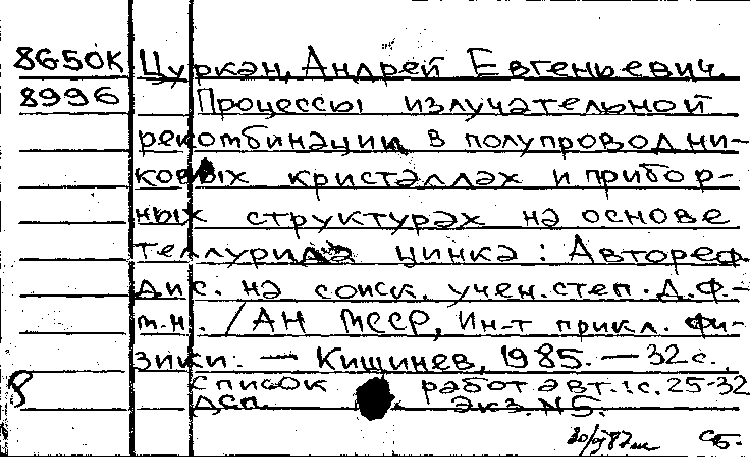 8650К Цуркан, Андрей Евгеньевич.
8996 Процессы излучательной
рекомбинации в полупроводни-
ковых кристаллах и прибор-
ных структурах на основе
теллурида цинка: Автореф.
дис. на соиск. учен. степ. д.ф.-
м.н. / АН МССР, Ин-т прикл. фи-
зики. — Кишинев, 1985. — 32 с.
8 Список работ авт.: с. 25-32
ДСП. Экз. N 5.
СБ.